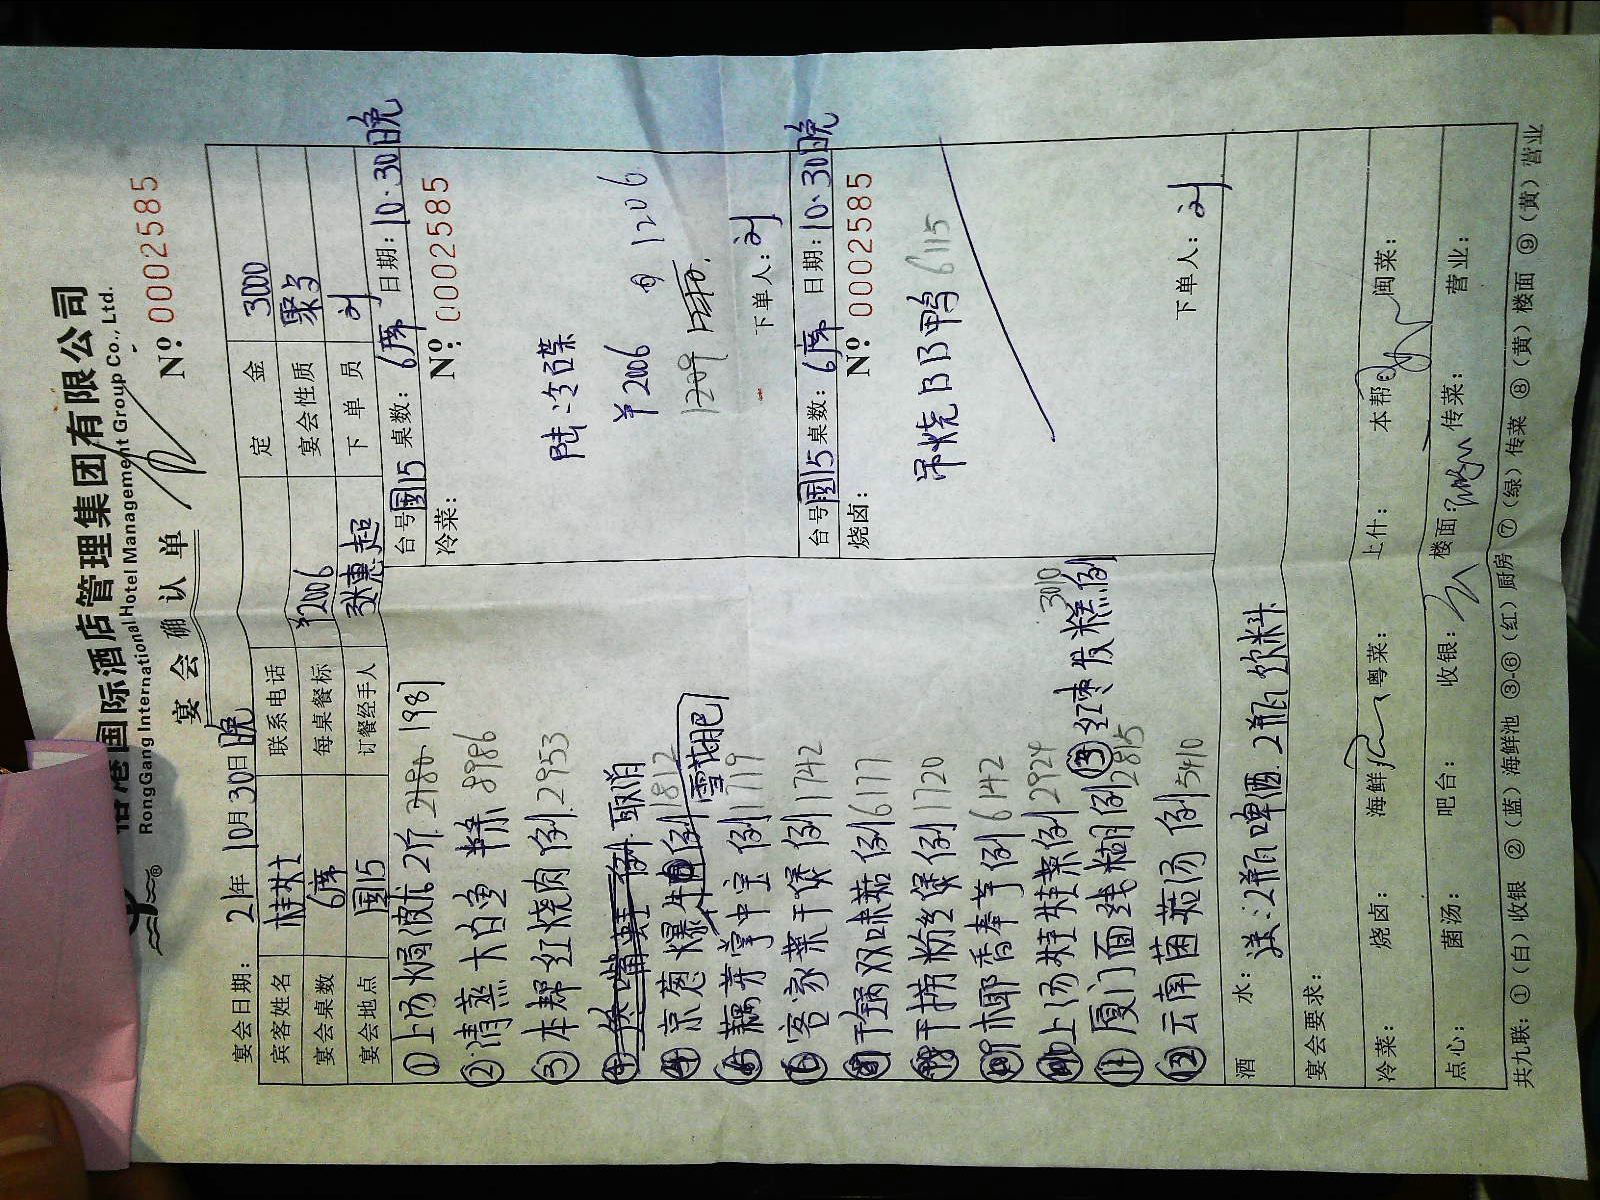 港国际酒店管理集团有限公司
RongGang International Hotel Management Group Co., Ltd.
宴会确认单
Nº 0002585
宴会日期: 21年 10月30日晚
宾客姓名 联系电话 定金 3000
宴会桌数 6席 每桌餐标 ¥2006 宴会性质
宴会地点 园15 订餐经手人 张惠超 下单员 刘
①上汤焗 2斤 1987
②清蒸大白鱼 8986
③本帮红烧肉 例 2953
取消
④京葱爆牛 例 1812
雪花肥
⑤藕芽掌中宝 例 1719
⑥客家菜干煲 例 1742
干锅双味菇 例 6177
干捞粉丝煲 例 1720
椰香奉芋 例 6142
上汤娃娃菜 例 2924
⑪厦门面线糊 例 2815
⑫云南菌菇汤 例 5410
⑬红枣发糕 例 3010
台号 园15 桌数: 6席 日期: 10·30日晚
冷菜: Nº: 0002585
陆冷碟
¥2006 1206
下单人: 刘
台号 园15 桌数: 6席 日期: 10·30日晚
烧卤: Nº 0002585
吊烧BB鸭 6115
下单人: 刘
酒水: 送: 2瓶啤酒 2瓶饮料
宴会要求:
冷菜: 烧卤: 海鲜 粤菜: 上什: 本帮: 闽菜:
点心: 菌汤: 吧台: 收银: 楼面: 传菜: 营业:
共九联: ①(白)收银 ②(蓝)海鲜池 ③-⑥(红)厨房 ⑦(绿)传菜 ⑧(黄)楼面 ⑨(黄)营业